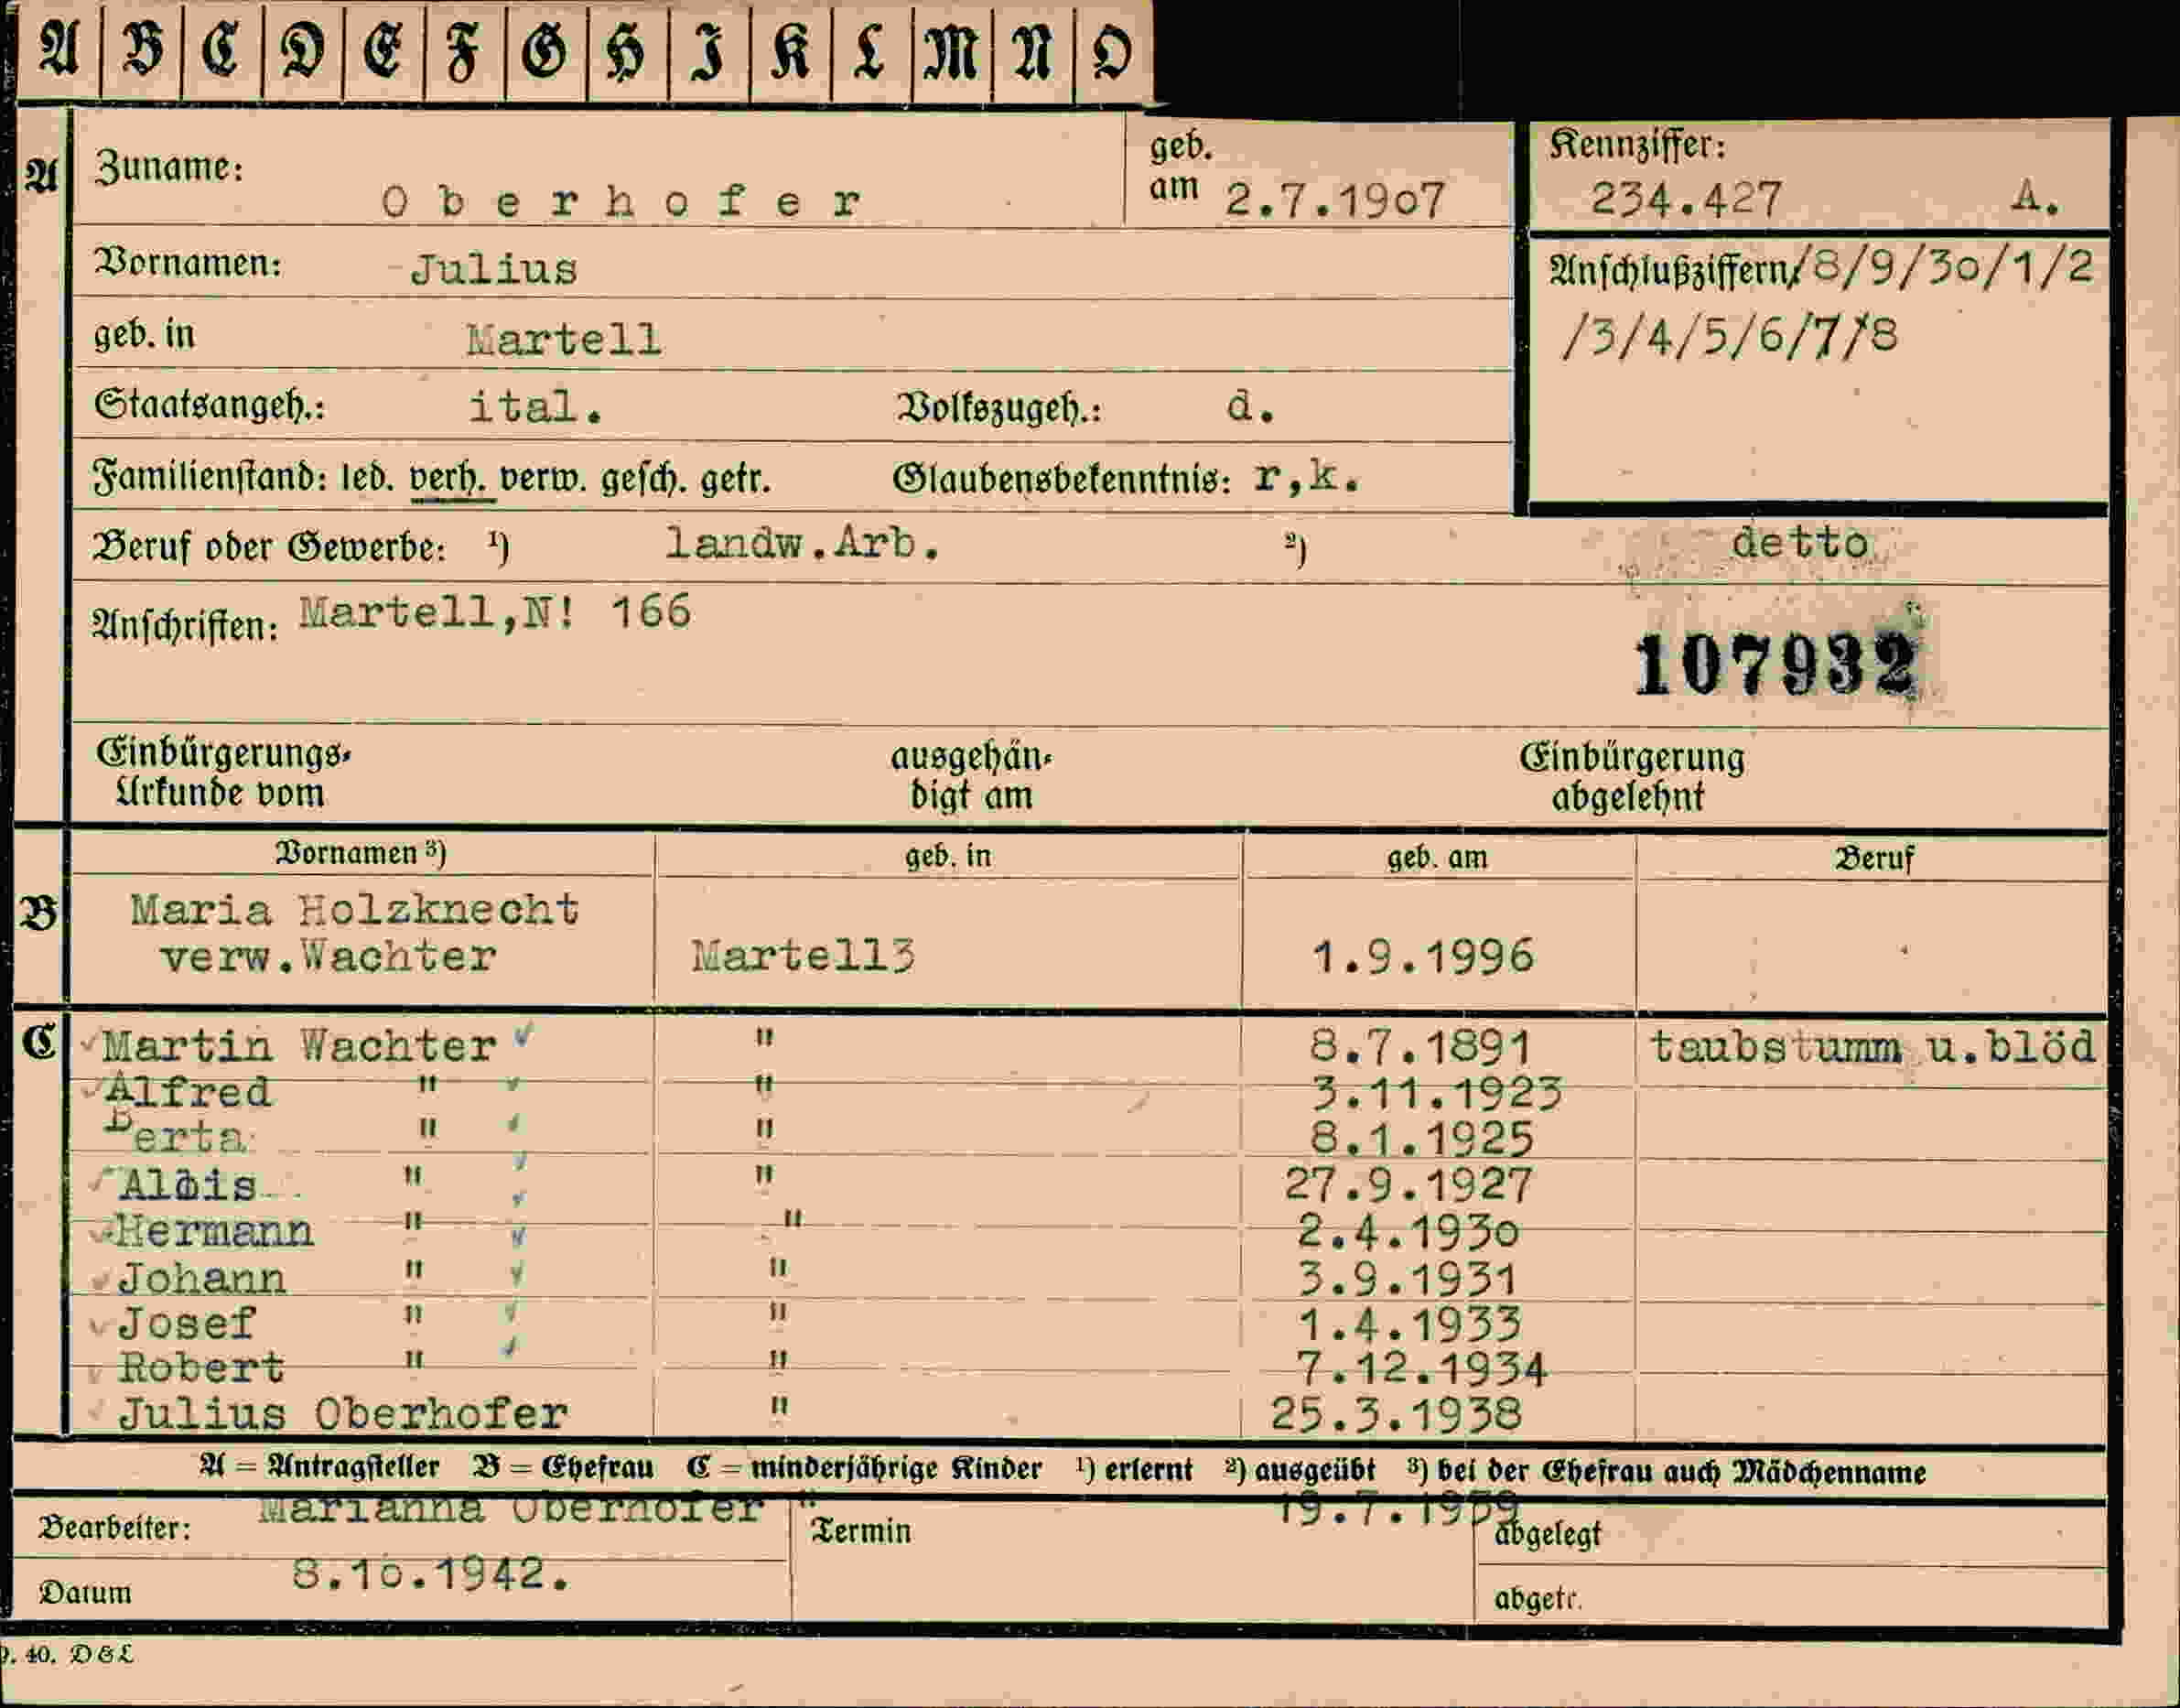 A B C D E F G H I K L M N O
A Zuname: Oberhofer geb. am 2.7.1907 Kennziffer: 234.427 A.
Vornamen: Julius Anschlußziffern/8/9/30/1/2
geb. in Martell /3/4/5/6/7/8
Staatsangeh.: ital. Volkszugeh.: d.
Familienstand: led. verh. verw. gesch. getr. Glaubensbekenntnis: r,k.
Beruf oder Gewerbe: ¹) landw.Arb. ²) detto
Anschriften: Martell,N! 166
107932
Einbürgerungs- ausgehän- Einbürgerung
Urkunde vom digt am abgelehnt
Vornamen ³) geb. in geb. am Beruf
B Maria Holzknecht
verw.Wachter Martell3 1.9.1996
C Martin Wachter " 8.7.1891 taubstumm u.blöd
Alfred " " 3.11.1923
Berta " " 8.1.1925
Alois " " 27.9.1927
Hermann " " 2.4.1930
Johann " " 3.9.1931
Josef " " 1.4.1933
Robert " " 7.12.1934
Julius Oberhofer " 25.3.1938
A = Antragsteller B = Ehefrau C = minderjährige Kinder ¹) erlernt ²) ausgeübt ³) bei der Ehefrau auch Mädchenname
Marianna Oberhofer " 19.7.1939
Bearbeiter: Termin abgelegt
8.10.1942.
Datum abgetr.
. 40. D&L